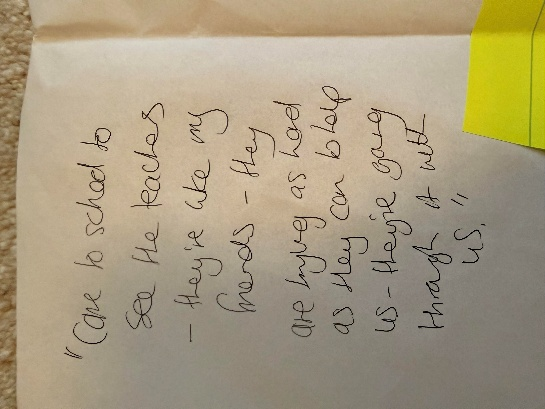 "Came to school to
see the teachers
- they're like my
friends - they
are trying as hard
as they can to help
us - they're going
through it with
us."